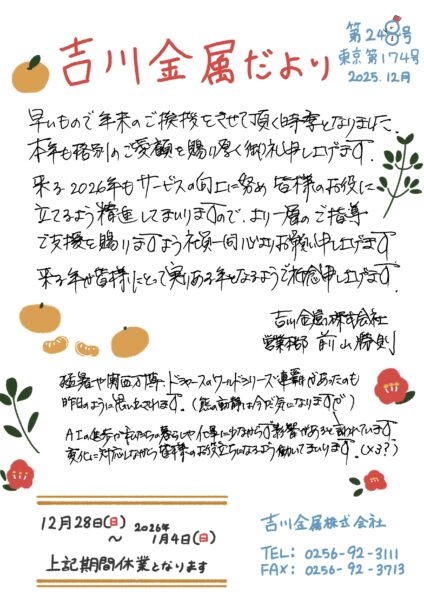 吉川金属だより
第248号
東京第174号
2025.12月
早いもので年末のご挨拶をさせて頂く時季となりました.
本年も格別のご愛顧を賜り厚く御礼申し上げます.
来る2026年もサービスの向上に努め皆様のお役に
立てるよう精進してまいりますので、より一層のご指導
ご支援を賜りますよう社員一同心よりお願い申し上げます.
来る年が皆様にとって実りある年となるようご祈念申し上げます.
吉川金属株式会社
営業本部 前山勝則
猛暑や関西万博、ドジャースのワールドシリーズ連覇があったのも
昨日のように思い出されます. (熊の動静は今だ気になりますが)
AIの進歩が私たちの暮らしや仕事に少なからず影響があると言われています.
変化に対応しながら皆様のお役立ちになるよう働いてまいります. (×3?)
12月28日(日)
～
2026年
1月4日(日)
上記期間休業となります
吉川金属株式会社
TEL: 0256-92-3111
FAX: 0256-92-3713